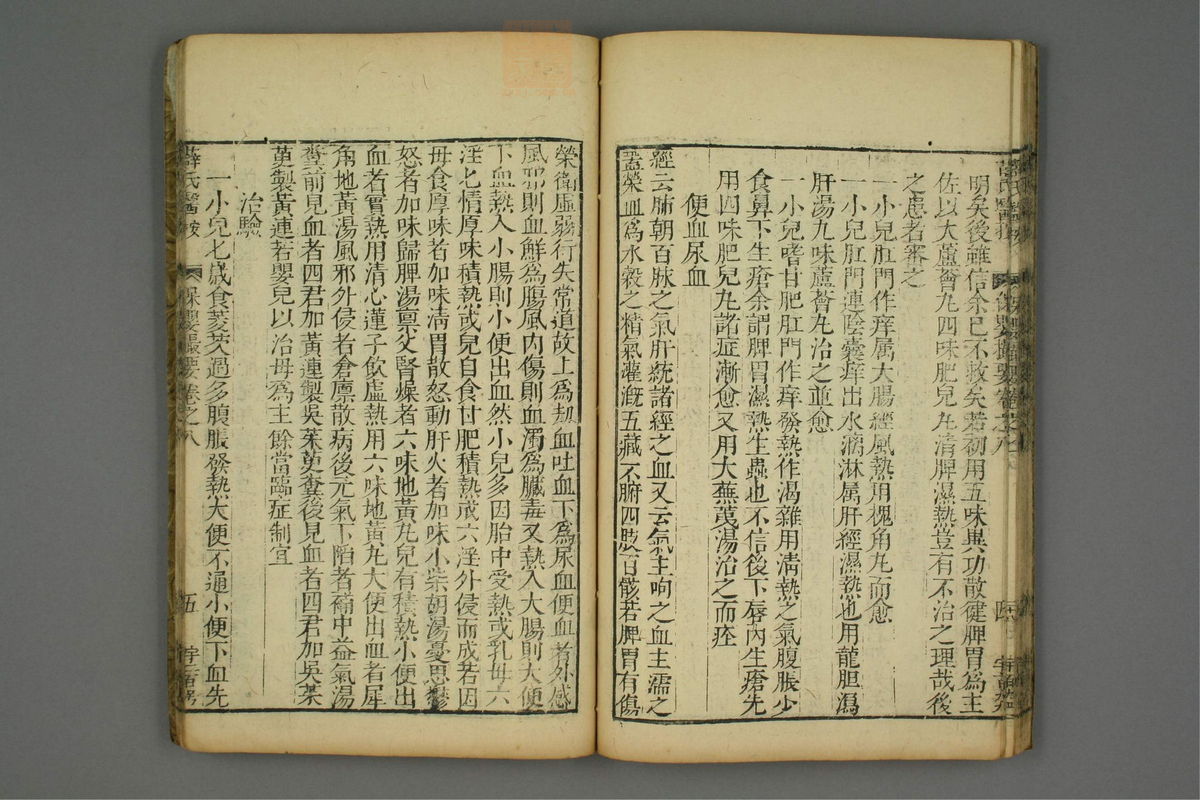 明矣後雖信余已不救矣若初用五味異功散健脾胃為主
佐以大蘆薈丸四味肥兒丸清脾濕熱豈有不治之理哉後
之患者審之
一小兒肛門作痒属大腸經風熱用槐角丸而愈
一小兒肛門連陰囊痒出水滴淋属肝經濕熱也用龍胆瀉
肝湯九味蘆薈丸治之並愈
一小兒嗜甘肥肛門作痒發熱作渴雜用清熱之氣腹脹少
食鼻下生瘡余謂脾胃濕熱生蟲也不信後下唇內生瘡先
用四味肥兒丸諸症漸愈又用大蕪荑湯治之而痊
便血尿血
經云肺朝百脉之氣肝統諸經之血又云氣主呴之血主濡之
蓋榮血為水穀之精氣灌漑五藏不腑四肢百骸若脾胃有傷
榮衛虛弱行失常道故上為衂血吐血下為尿血便血者外感
風邪則血鮮為腸風內傷則血濁為臟毒又熱入大腸則大便
下血熱入小腸則小便出血然小兒多因胎中受熱或乳母六
淫七情厚味積熱或兒自食甘肥積熱或六淫外侵而成若因
母食厚味者加味清胃散怒動肝火者加味小柴胡湯憂思鬱
怒者加味歸脾湯禀父腎燥者六味地黃丸兒有積熱小便出
血者實熱用清心蓮子飲虛熱用六味地黃丸大便出血者犀
角地黃湯風邪外侵者倉廪散病後元氣下陷者補中益氣湯
糞前見血者四君加黃連製吳茱萸糞後見血者四君加吳茱
萸製黃連若嬰兒以治母為主餘當臨症制宜
治驗
一小兒七歲食菱炗過多腹脹發熱大便不通小便下血先
薛氏醫按
保嬰撮要卷之八
五